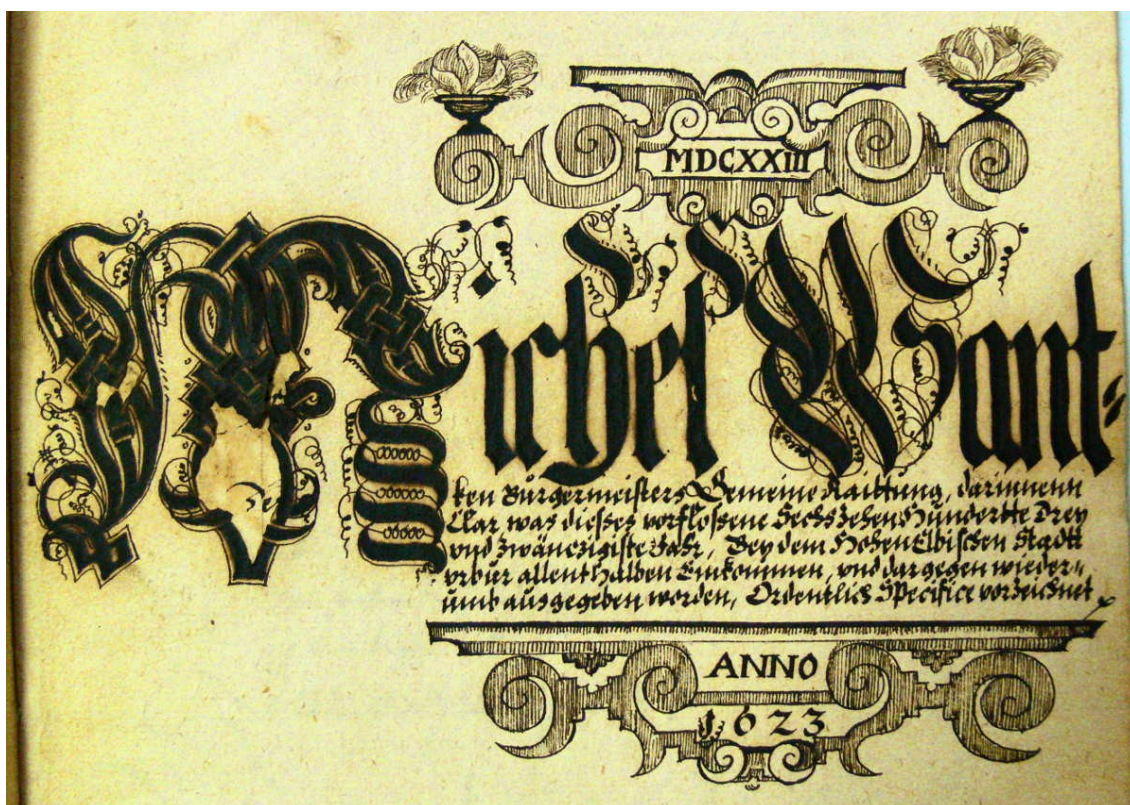 MDCXXIII
Michel Want-
ken Bürgermeisters Gemeine Raittung, darinnenn
Clar was dieses vorflossene Sechszehen Hundertte Drey
vnd zwänczigiste Jahr, Bey dem HohenElbischen Stadt
vrbur allenthalben Einkommen, vnd dargegen wieder„
umb ausgegeben worden, Ordentlich Specifice vorzeichnet
ANNO
1623